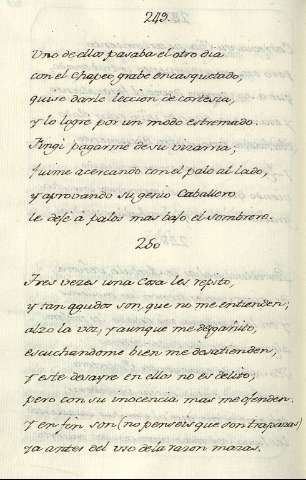 249.
Uno de ellos pasaba el otro dia
con el chapeo grabe encasquetado,
quise darle leccion de cortesia,
y lo logrè por un modo estremado.
Fingi pagarme de su vizarria;
fuime acercando con el palo al lado,
y aprovando su genio Caballero
le dejè à palos mas bajo el sombrero.
250
Tres vezes una Cosa les repito,
y tan agudos son, que no me entienden;
alzo la voz, y aunque me degañito,
escuchandome bien me desatienden;
Y este desayre en ellos no es delito;
pero con su inocencia mas me ofenden.
Y en fin son (no penseis que son trapazas)
ya antes del uso de la razon mazas.